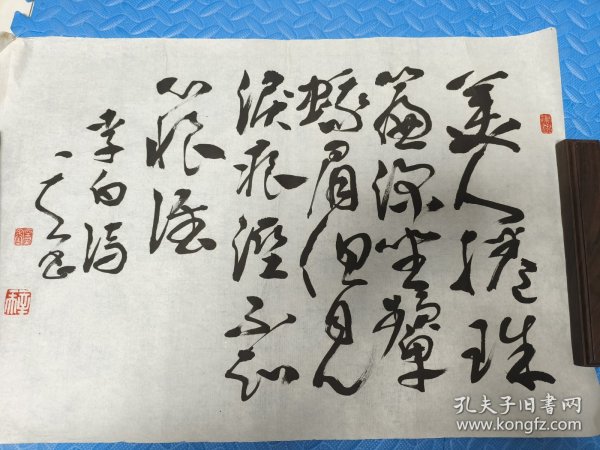 美人捲珠
簾深坐顰
蛾眉但見
淚痕溼不知
心恨誰
李白詩
孔夫子旧书网
www.kongfz.com